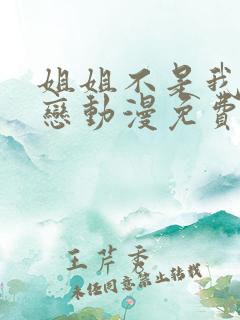 姐姐不是我
戀動漫免費
王芹秀
未经同意禁止转载